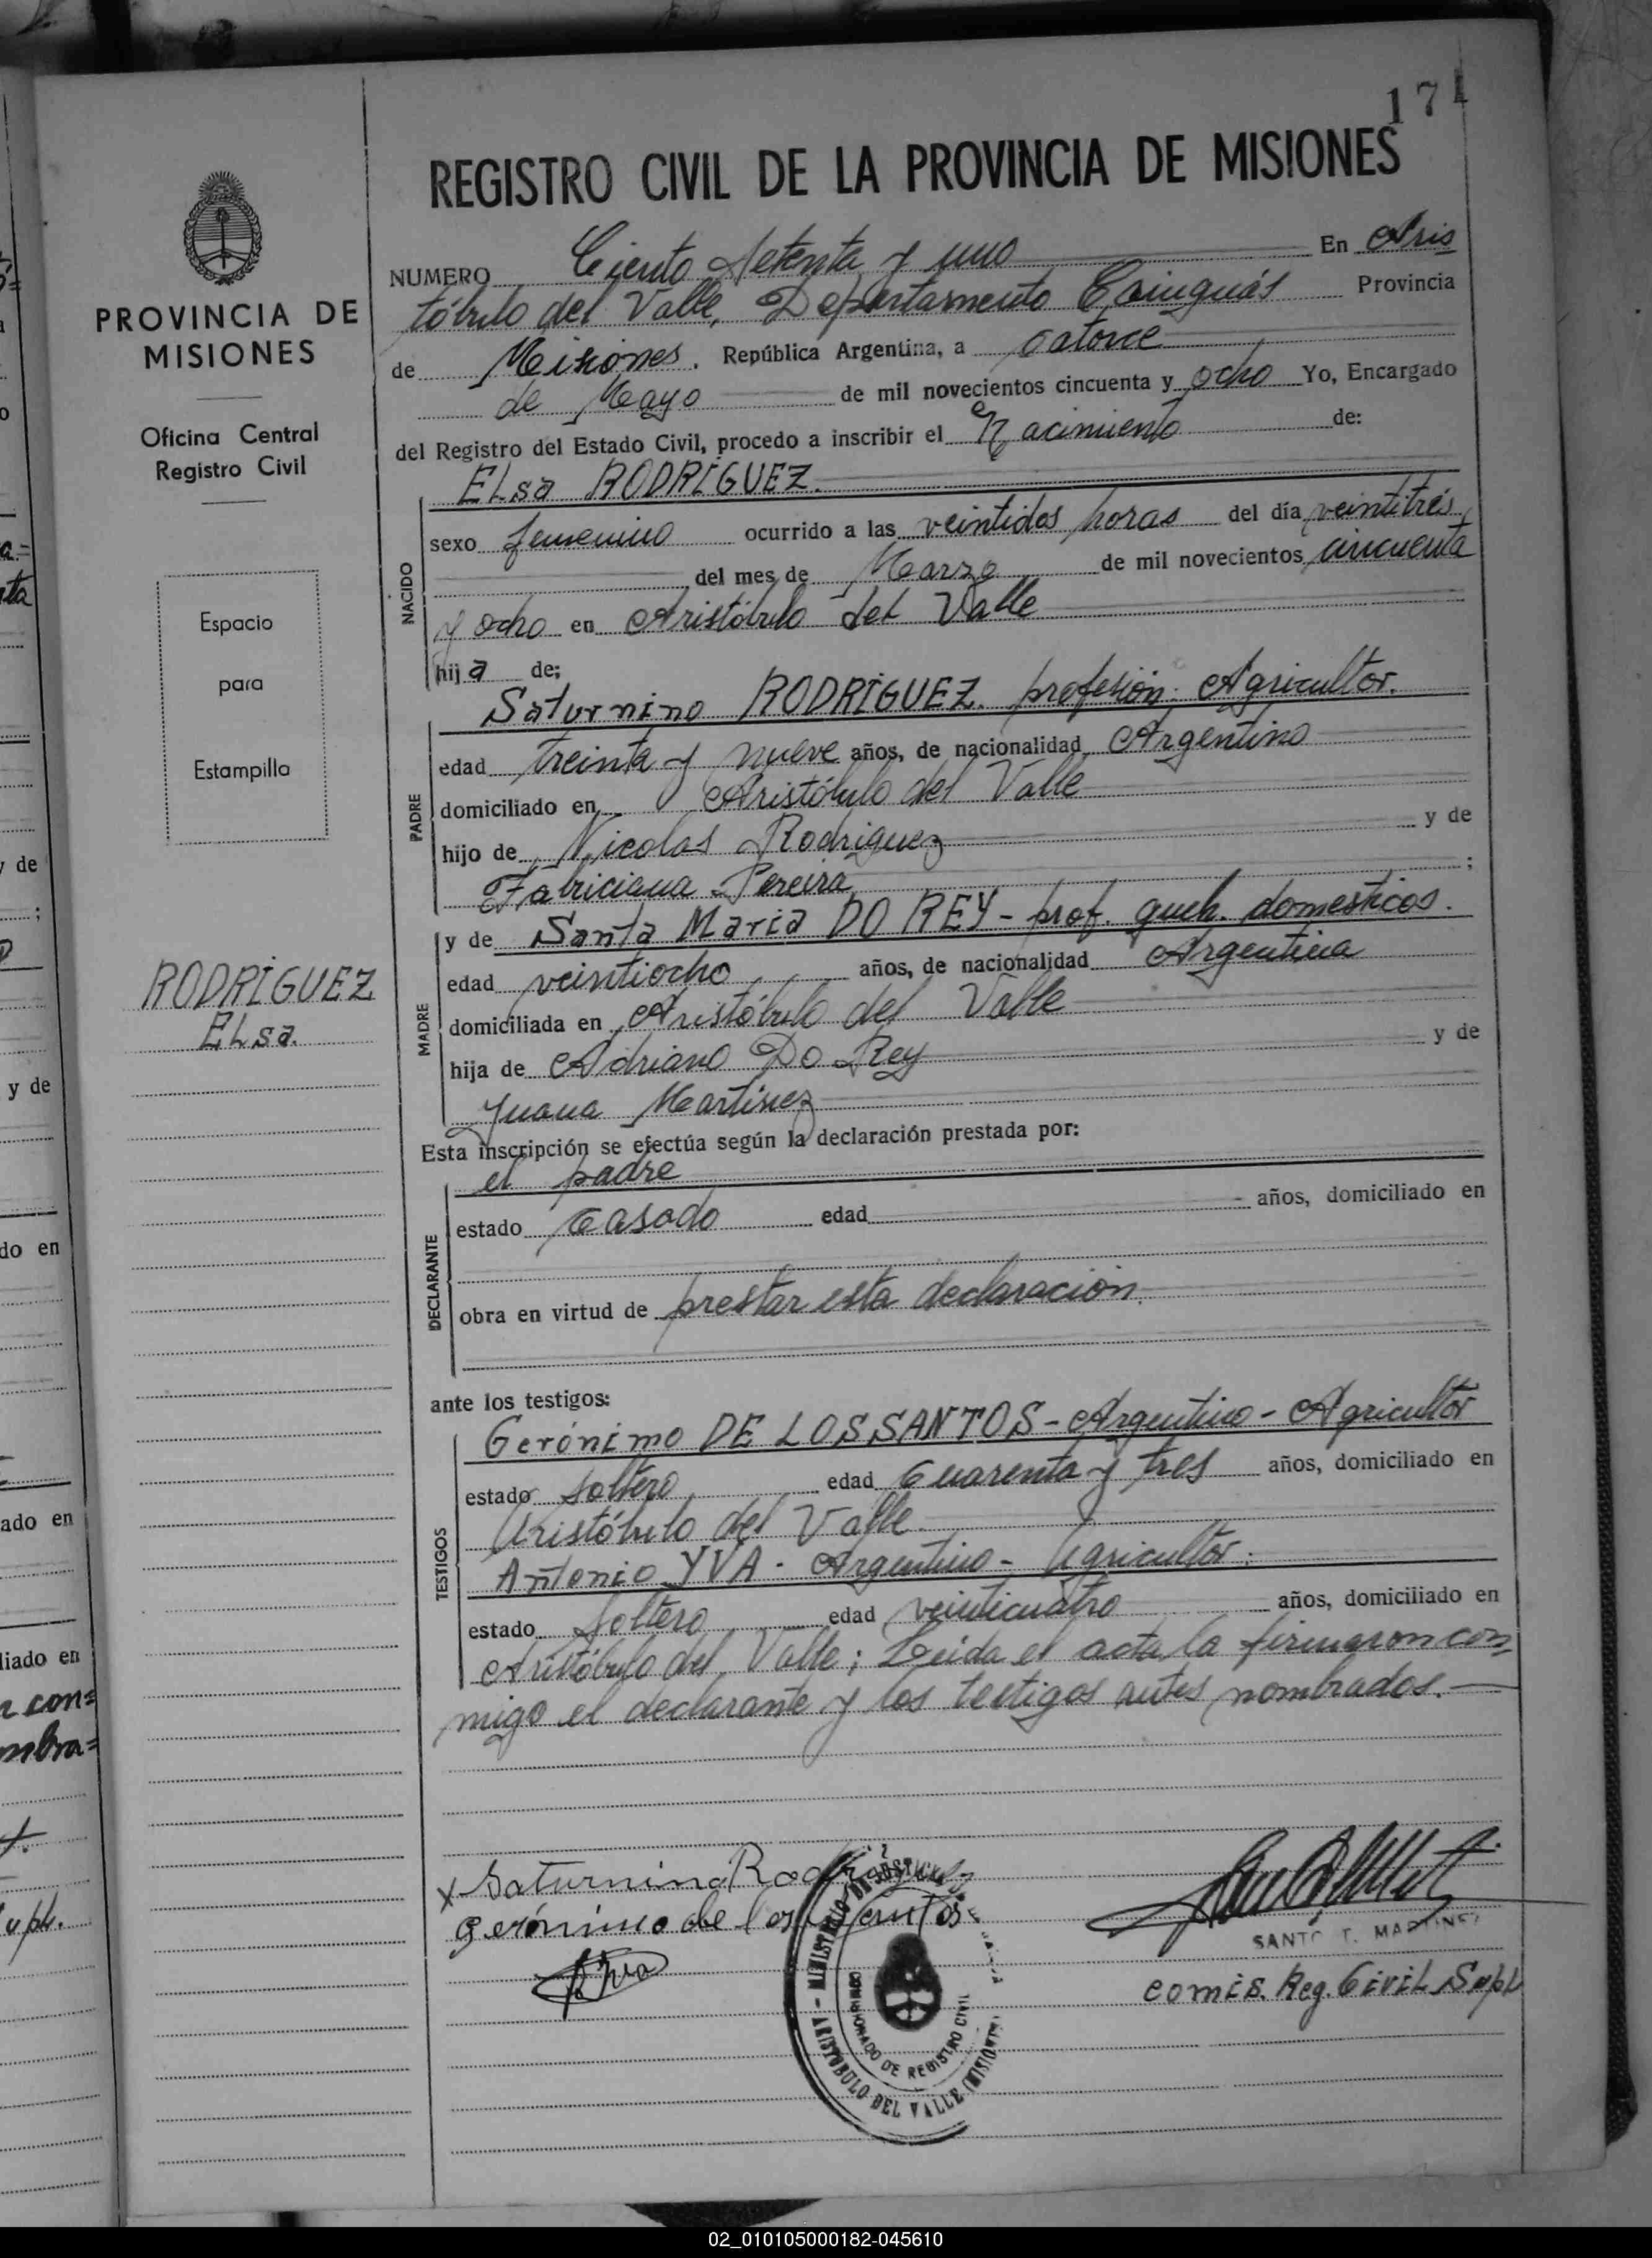 171
REGISTRO CIVIL DE LA PROVINCIA DE MISIONES
PROVINCIA DE
MISIONES
Oficina Central
Registro Civil
Espacio
para
Estampilla
RODRÍGUEZ
ELsa.
NUMERO Ciento setenta y uno En Aris
tóbulo del Valle, Departamento Cainguás Provincia
de Misiones. República Argentina, a catorce
de Mayo de mil novecientos cincuenta y ocho Yo, Encargado
del Registro del Estado Civil, procedo a inscribir el Nacimiento de:
ELsa RODRÍGUEZ.
NACIDO
sexo femenino ocurrido a las veintidos horas del día veintitrés
del mes de Marzo de mil novecientos cincuenta
y ocho en Aristóbulo del Valle
hija de;
Saturnino RODRÍGUEZ. profesión: Agricultor.
PADRE
edad treinta y nueve años, de nacionalidad Argentino
domiciliado en Aristóbulo del Valle
hijo de Nicolas Rodriguez y de
Fabriciana Pereira ;
y de Santa María DO REY - prof. queh. domesticos.
MADRE
edad veintiocho años, de nacionalidad Argentina
domiciliada en Aristóbulo del Valle
hija de Adriano Do Rey y de
Juana Martinez
Esta inscripción se efectúa según la declaración prestada por:
el padre
DECLARANTE
estado Casado edad años, domiciliado en
obra en virtud de prestar esta declaración.
ante los testigos:
Gerónimo DE LOS SANTOS - Argentino - Agricultor
TESTIGOS
estado soltero edad Cuarenta y tres años, domiciliado en
Aristóbulo del Valle.
Antonio YVA - Argentino - Agricultor.
estado Soltero edad veinticuatro años, domiciliado en
Aristóbulo del Valle; Leida el acta, la firmaron con=
migo el declarante y los testigos antes nombrados.
x Saturnino Rodriguez
Gerónimo de los Santos
A Yva
SANTO T. MARTINEZ
comis. Reg. Civil Supl
MINISTERIO
ARISTOBULO DEL VALLE (MISIONES)
DE REGISTRO CIVIL
02_010105000182-045610